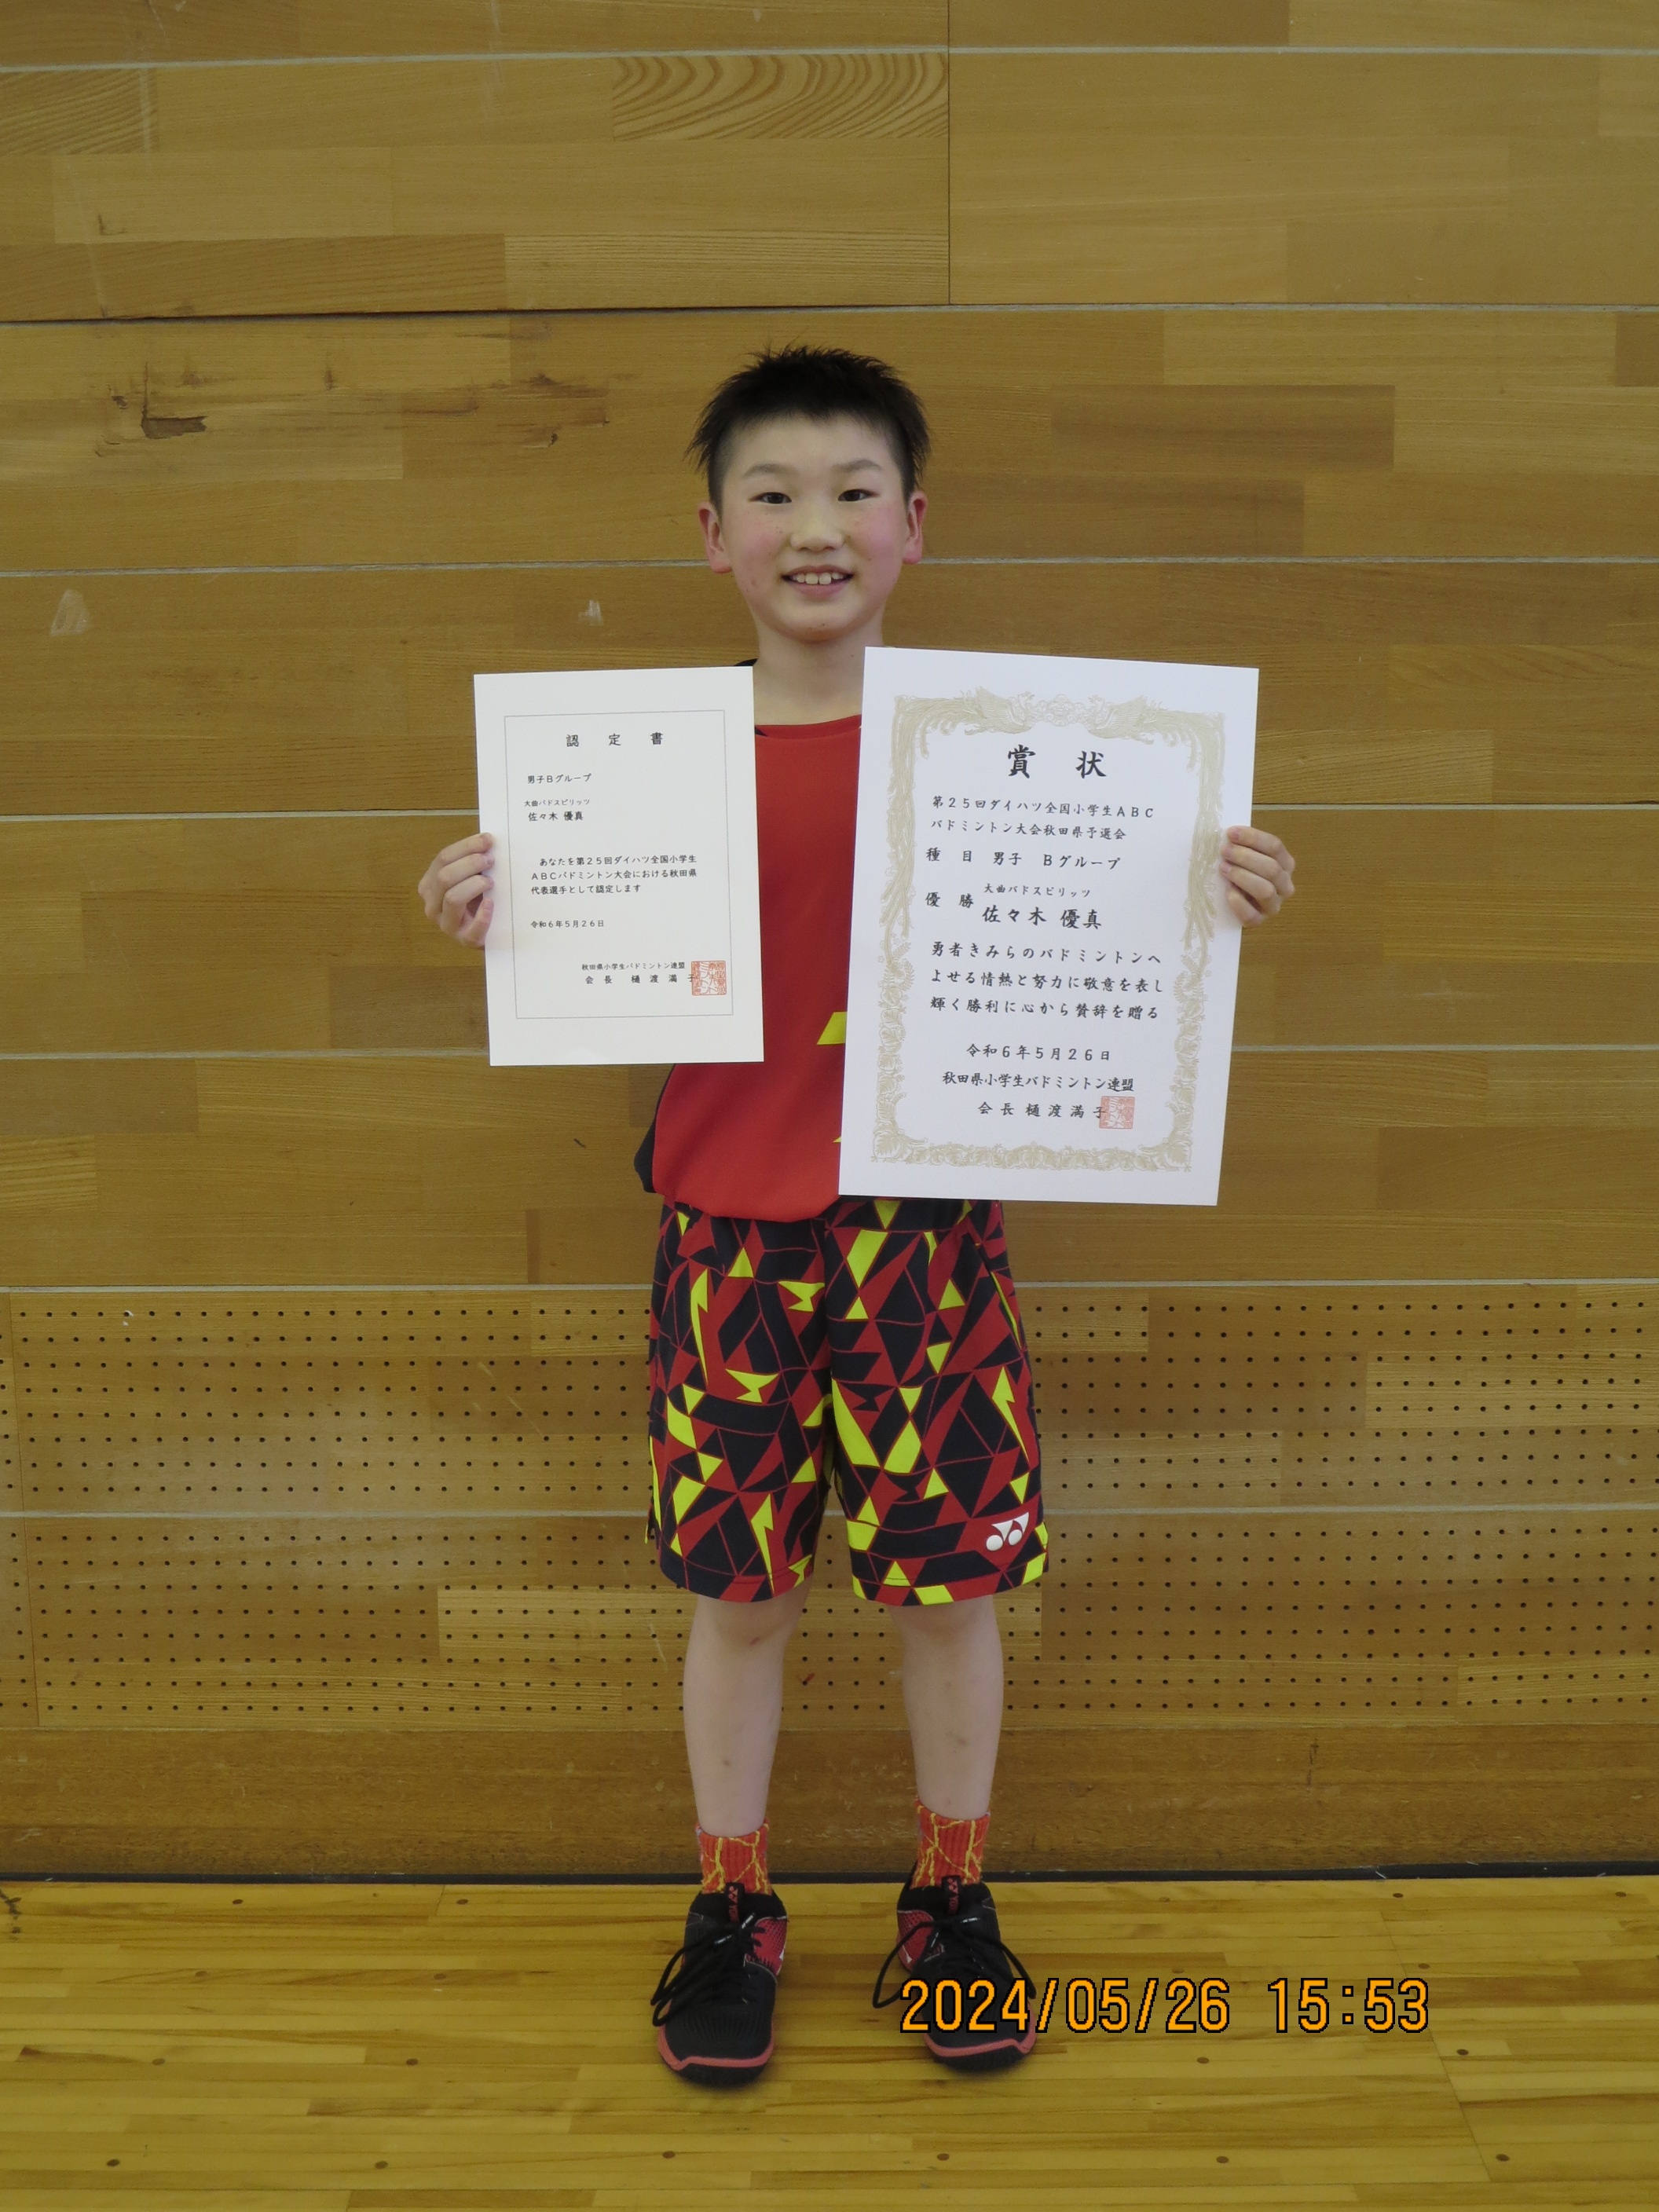 認定書
男子Bグループ
大曲バドスピリッツ
佐々木 優真
あなたを第25回ダイハツ全国小学生
ABCバドミントン大会における秋田県
代表選手として認定します
令和6年5月26日
秋田県小学生バドミントン連盟
会長 樋渡満子
賞状
第25回ダイハツ全国小学生ABC
バドミントン大会秋田県予選会
種目 男子 Bグループ
大曲バドスピリッツ
優勝 佐々木 優真
勇者きみらのバドミントンへ
よせる情熱と努力に敬意を表し
輝く勝利に心から賛辞を贈る
令和6年5月26日
秋田県小学生バドミントン連盟
会長 樋渡満子
2024/05/26 15:53